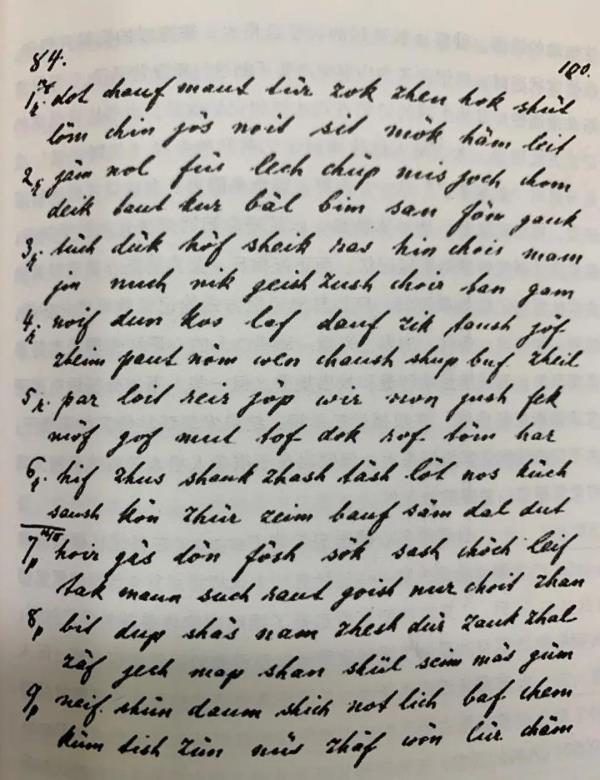 84.
180.
1. dot chauf maut tür zok zhen hok shüt
löm chin jös noit sit mök häm leit
2. jäm nol füs lech chüp mis joch chom
deik taut kur bäl bim san fön gauk
3. tüch dük höf sheik ras hin chois mam
jin nuch nik geish zush choir tan gam
4. noif dun kos laf dauf zik taush jöf
zheim paut nöm wen chaush shup buf zheil
5. par loit reir jöp wir non gush fek
möf gof mut tof dok rof töm har
6. hif zhus shauk zhash täsh löt nos küch
saush kön zhür zeim bauf säm dal dut
7. hoir gäs dön fösh sök sash chöch leif
tak maun such raut goist nur choit zhan
8. bit dup shäs nam zhesh dür zauk zhal
zäf jech map shan shül seim mäs güm
9. neif shün daum shich not lich baf chem
küm tish zün nüs zhäf wön lür chäm